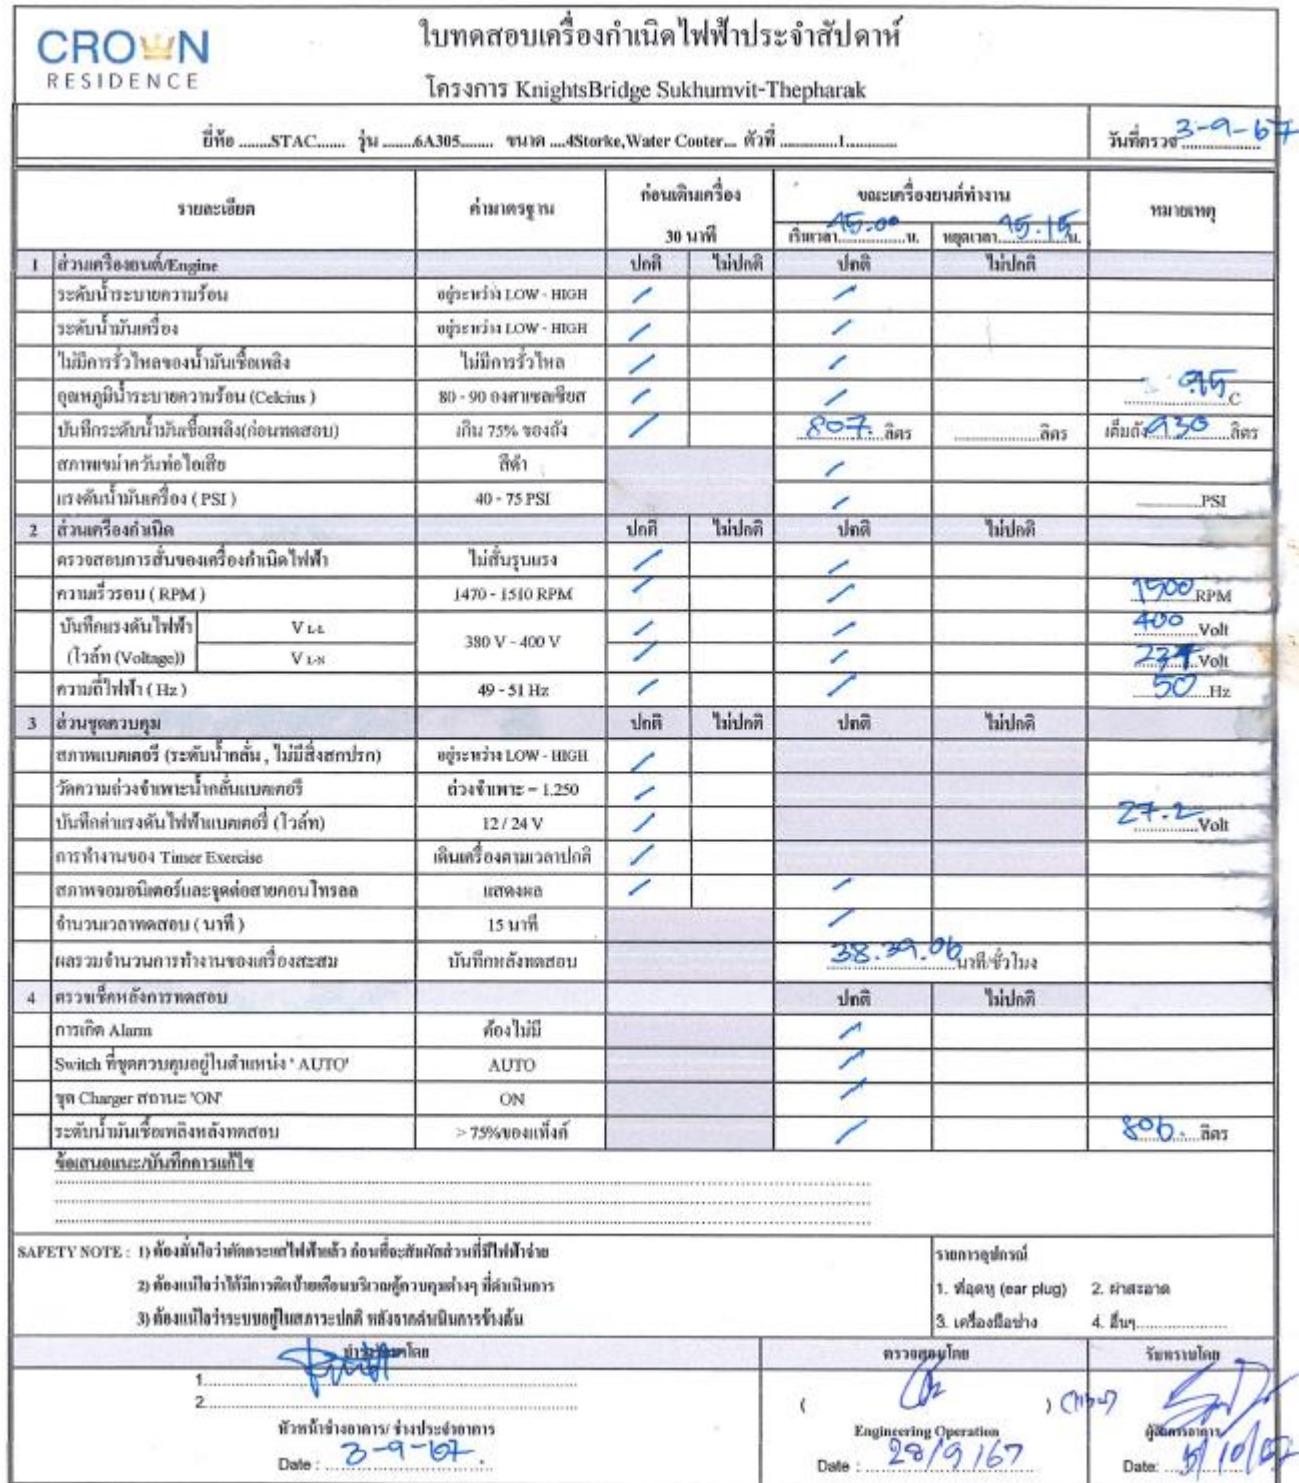 CROWN
RESIDENCE
ใบทดสอบเครื่องกำเนิดไฟฟ้าประจำสัปดาห์
โครงการ KnightsBridge Sukhumvit-Thepharak
ยี่ห้อ ........STAC....... รุ่น ........6A305........ ขนาด ....4Storke,Water Cooter.... ตัวที่ ..............1.............
วันที่ตรวจ 3-9-67
รายละเอียด ค่ามาตรฐาน ก่อนเดินเครื่อง ขณะเครื่องยนต์ทำงาน หมายเหตุ
30 นาที เริ่มเวลา 15.00 น. หยุดเวลา 15.15 น.
1 ส่วนเครื่องยนต์/Engine ปกติ ไม่ปกติ ปกติ ไม่ปกติ
ระดับน้ำระบายความร้อน อยู่ระหว่าง LOW - HIGH / /
ระดับน้ำมันเครื่อง อยู่ระหว่าง LOW - HIGH / /
ไม่มีการรั่วไหลของน้ำมันเชื้อเพลิง ไม่มีการรั่วไหล / /
อุณหภูมิน้ำระบายความร้อน (Celcius ) 80 - 90 องศาเซลเซียส / / C
บันทึกระดับน้ำมันเชื้อเพลิง(ก่อนทดสอบ) เกิน 75% ของถัง / 807. ลิตร ....................ลิตร เต็มถัง 930 ลิตร
สภาพเขม่าควันท่อไอเสีย สีดำ /
แรงดันน้ำมันเครื่อง ( PSI ) 40 - 75 PSI / ..............PSI
2 ส่วนเครื่องกำเนิด ปกติ ไม่ปกติ ปกติ ไม่ปกติ
ตรวจสอบการสั่นของเครื่องกำเนิดไฟฟ้า ไม่สั่นรุนแรง / /
ความเร็วรอบ ( RPM ) 1470 - 1510 RPM / / 1500 RPM
บันทึกแรงดันไฟฟ้า V L-L 380 V - 400 V / / 400 Volt
(โวล์ท (Voltage)) V L-N / / Volt
ความถี่ไฟฟ้า ( Hz ) 49 - 51 Hz / / 50 Hz
3 ส่วนชุดควบคุม ปกติ ไม่ปกติ ปกติ ไม่ปกติ
สภาพแบตเตอรี่ (ระดับน้ำกลั่น , ไม่มีสิ่งสกปรก) อยู่ระหว่าง LOW - HIGH /
วัดความถ่วงจำเพาะน้ำกลั่นแบตเตอรี่ ถ่วงจำเพาะ = 1.250 /
บันทึกค่าแรงดันไฟฟ้าแบตเตอรี่ (โวล์ท) 12 / 24 V / 27.2 Volt
การทำงานของ Timer Exercise เดินเครื่องตามเวลาปกติ /
สภาพจอมอนิเตอร์และจุดต่อสายคอนโทรลล แสดงผล / /
จำนวนเวลาทดสอบ ( นาที ) 15 นาที /
ผลรวมจำนวนการทำงานของเครื่องสะสม บันทึกหลังทดสอบ 38.39.06 นาที/ชั่วโมง
4 ตรวจเช็คหลังการทดสอบ ปกติ ไม่ปกติ
การเกิด Alarm ต้องไม่มี /
Switch ที่ชุดควบคุมอยู่ในตำแหน่ง ' AUTO' AUTO /
ชุด Charger สถานะ 'ON' ON /
ระดับน้ำมันเชื้อเพลิงหลังทดสอบ > 75%ของแท็งก์ / 806. ลิตร
ข้อเสนอแนะ/บันทึกการแก้ไข
SAFETY NOTE : 1) ต้องมั่นใจว่าตัดกระแสไฟฟ้าแล้ว ก่อนที่จะสัมผัสส่วนที่มีไฟฟ้าจ่าย
2) ต้องแน่ใจว่าได้มีการติดป้ายเตือนบริเวณตู้ควบคุมต่างๆ ที่ดำเนินการ
3) ต้องแน่ใจว่าระบบอยู่ในสภาวะปกติ หลังจากดำเนินการข้างต้น
รายการอุปกรณ์
1. ที่อุดหู (ear plug) 2. ผ้าสะอาด
3. เครื่องมือช่าง 4. อื่นๆ....................
ตรวจสอบโดย รับทราบโดย
1
2
หัวหน้าช่างอาคาร/ ช่างประจำอาคาร Engineering Operation ผู้จัดการอาคาร
Date : 3-9-67. Date : 28/9/67 Date: 5/10/67